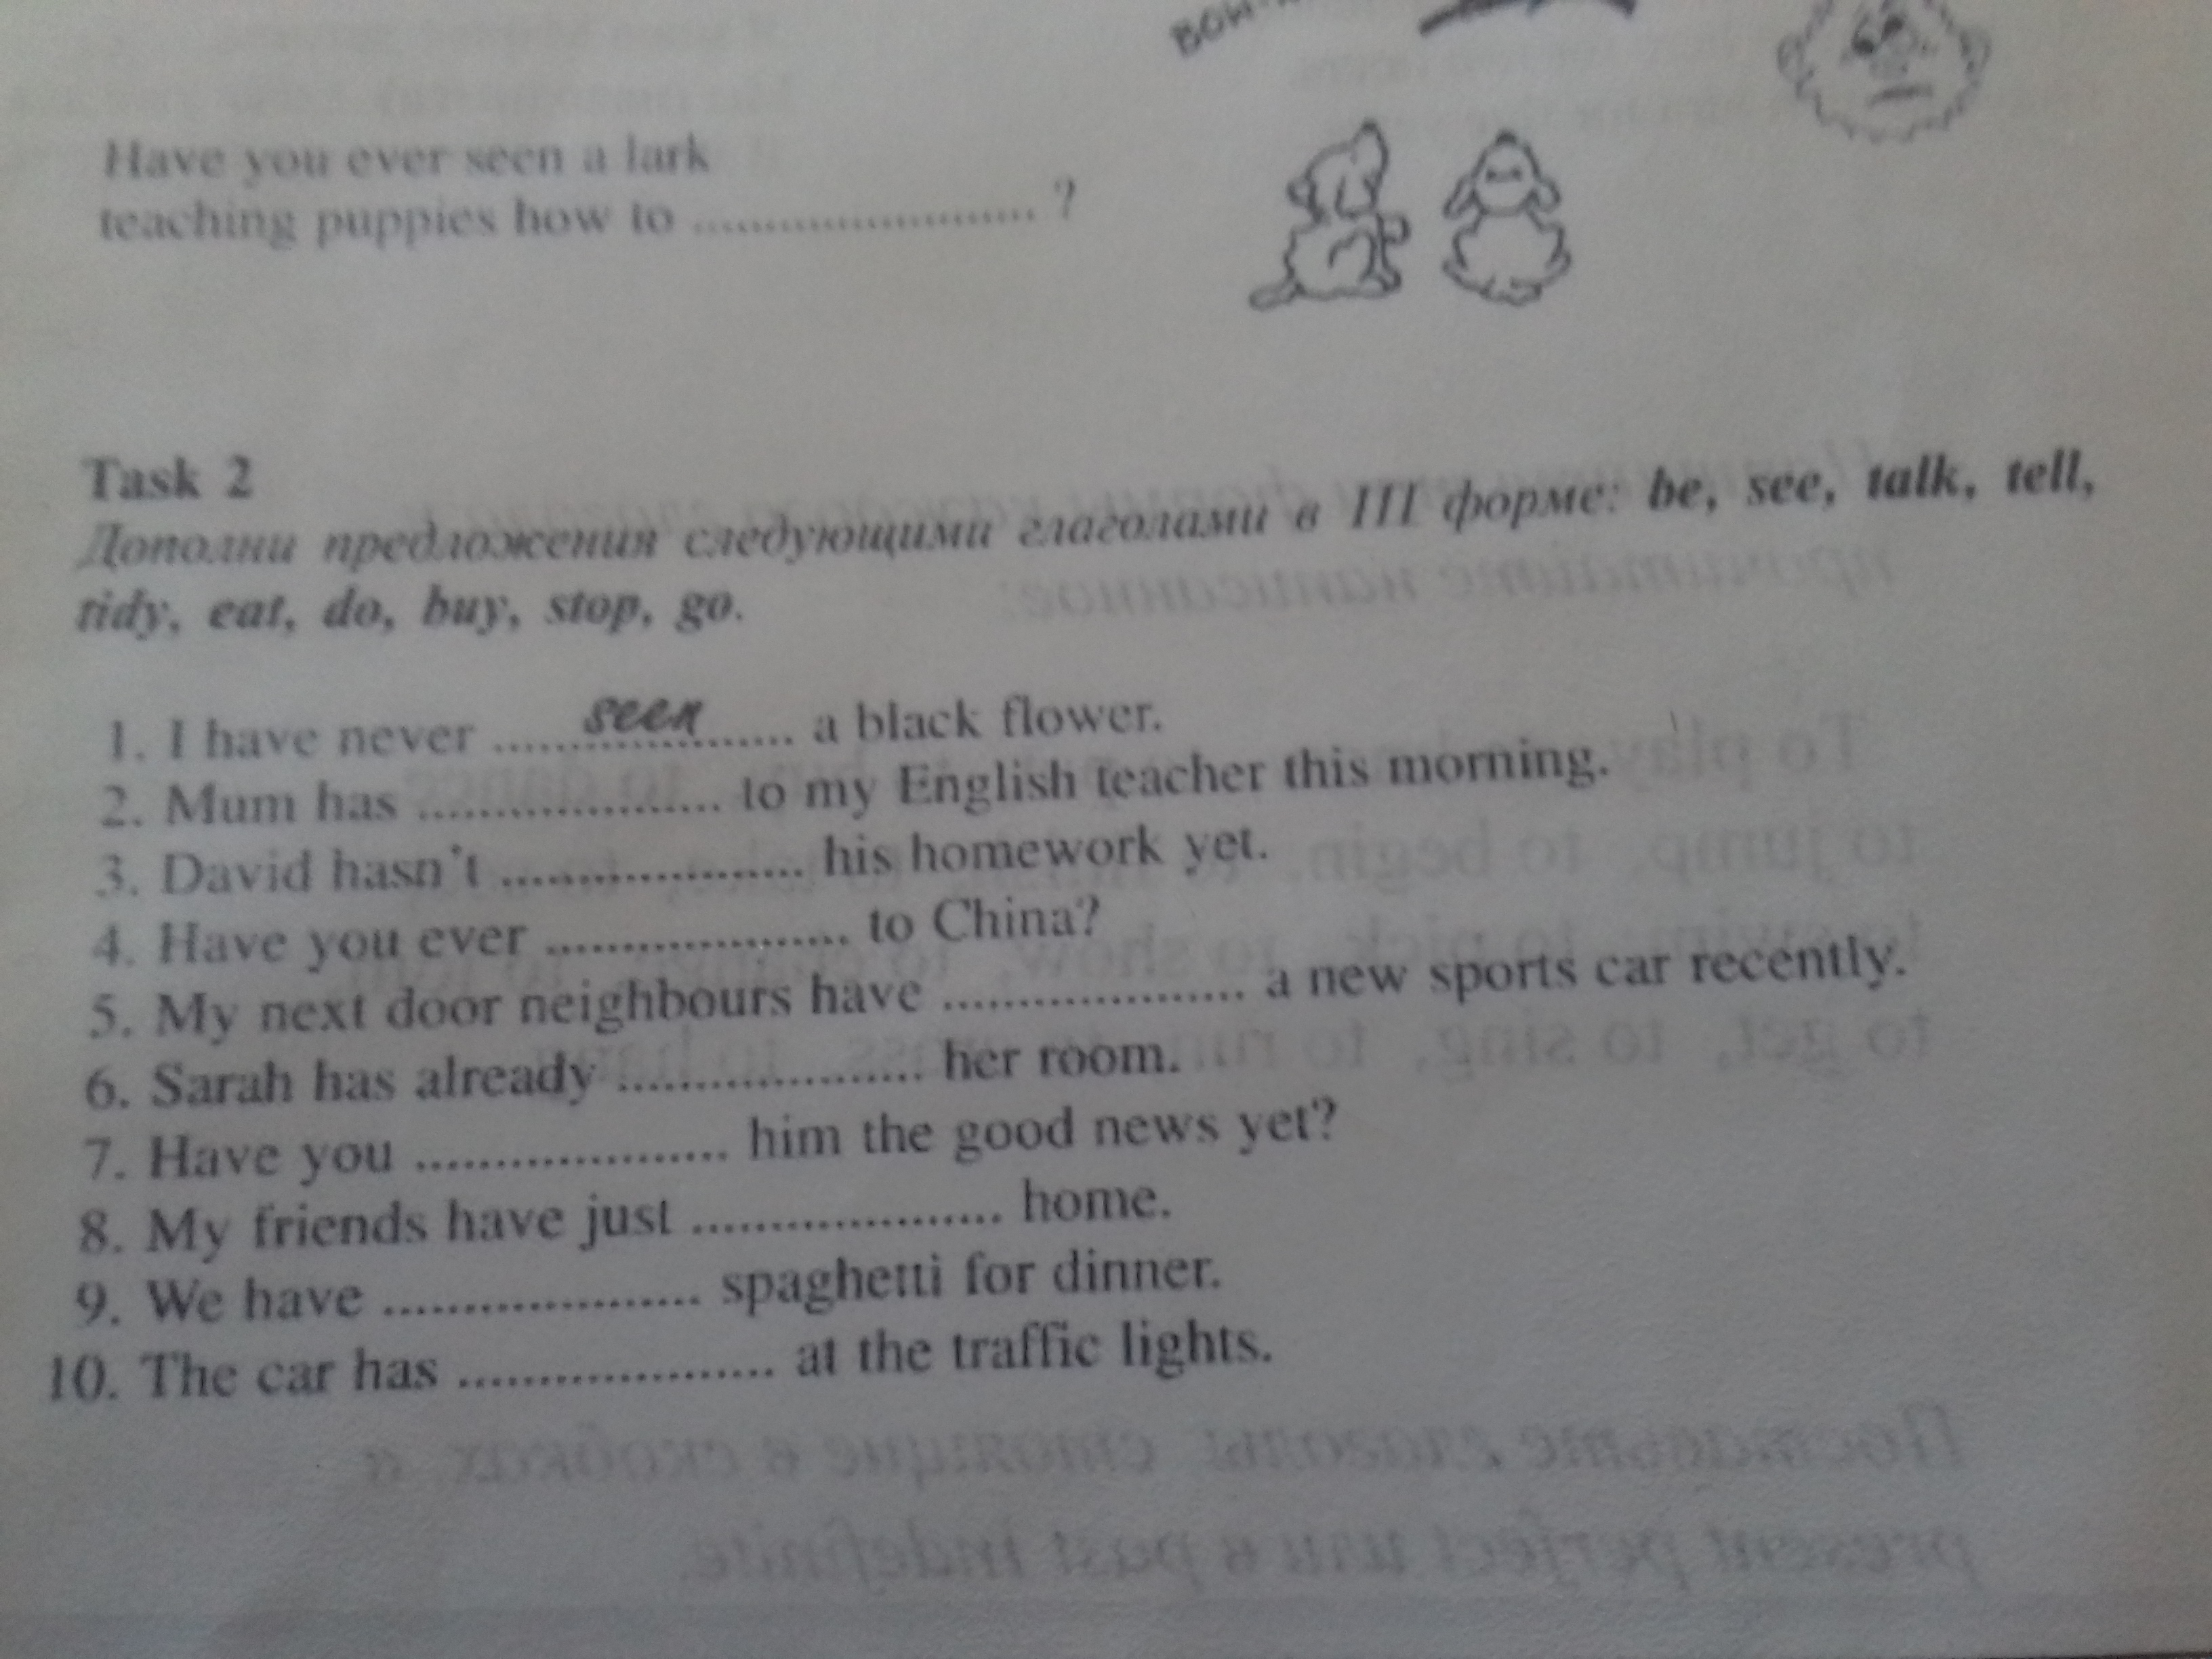 Have you ever seen a lark
teaching puppies how to ........................ ?
Task 2
Дополни предложения следующими глаголами в III форме: be, see, talk, tell,
tidy, eat, do, buy, stop, go.
1. I have never ......seen....... a black flower.
2. Mum has ..................... to my English teacher this morning.
3. David hasn't ..................... his homework yet.
4. Have you ever ..................... to China?
5. My next door neighbours have ..................... a new sports car recently.
6. Sarah has already ..................... her room.
7. Have you ..................... him the good news yet?
8. My friends have just ..................... home.
9. We have ..................... spaghetti for dinner.
10. The car has ..................... at the traffic lights.